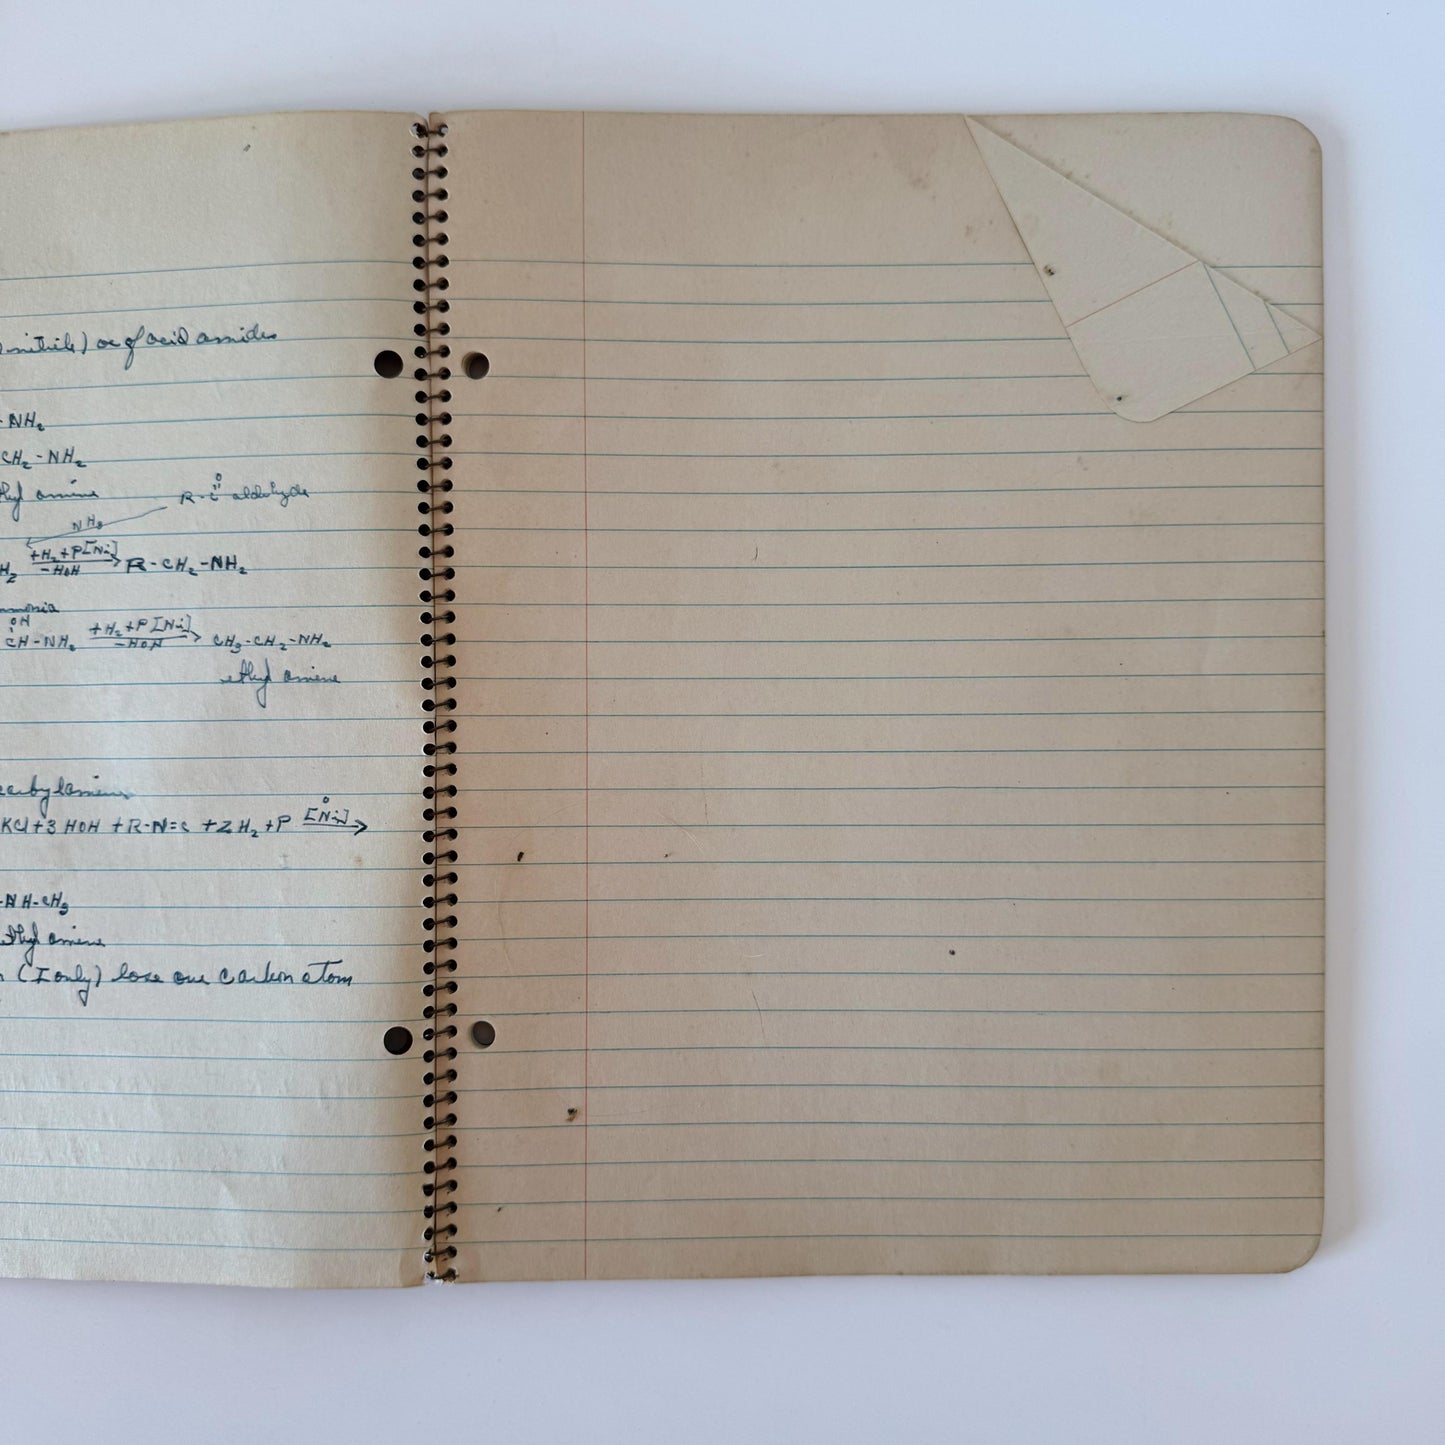 nitrile) or of acid amides
-NH₂
CH₂-NH₂
thyl amine
O
R-C aldehyde
NH₃
H₂ +H₂+P[Ni] -HOH → R-CH₂-NH₂
mmonia
OH
CH-NH₂ +H₂+P[Ni] -HOH → CH₃-CH₂-NH₂
ethyl amine
carbylamine
KCl+3 HOH +R-N=C +2H₂+P [Ni] →
-NH-CH₃
ethyl amine
(I only) lose one carbon atom